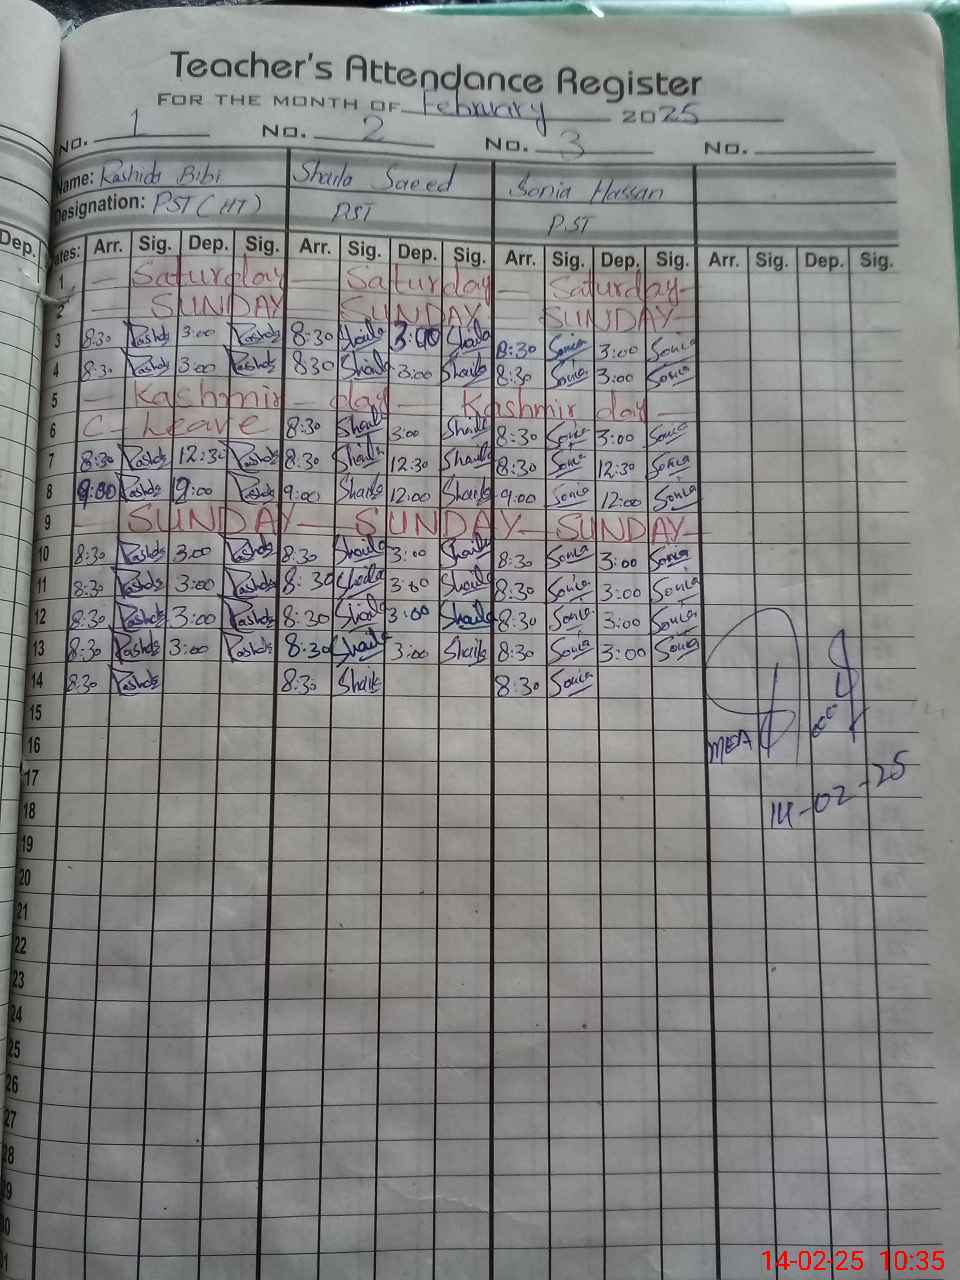 Teacher's Attendance Register
FOR THE MONTH OF February 2025
No. 1 No. 2 No. 3 No.
Name: Rashida Bibi Shaila Saeed Sonia Hassan
Designation: PST (HT) PST PST
Dep. Dates: Arr. Sig. Dep. Sig. Arr. Sig. Dep. Sig. Arr. Sig. Dep. Sig. Arr. Sig. Dep. Sig.
1 — Saturday — Saturday — Saturday —
2 — SUNDAY SUNDAY SUNDAY —
3 8:30 Rashda 3:00 Rashda 8:30 Shaila 3:00 Shaila 8:30 Sonia 3:00 Sonia
4 8:30 Rashda 3:00 Rashda 8:30 Shaila 3:00 Shaila 8:30 Sonia 3:00 Sonia
5 — Kashmir — day — Kashmir day —
6 C — Leave 8:30 Shaila 3:00 Shaila 8:30 Sonia 3:00 Sonia
7 8:30 Rashda 12:30 Rashda 8:30 Shaila 12:30 Shaila 8:30 Sonia 12:30 Sonia
8 9:00 Rashda 12:00 Rashda 9:00 Shaila 12:00 Shaila 9:00 Sonia 12:00 Sonia
9 — SUNDAY — SUNDAY — SUNDAY —
10 8:30 Rashda 3:00 Rashda 8:30 Shaila 3:00 Shaila 8:30 Sonia 3:00 Sonia
11 8:30 Rashda 3:00 Rashda 8:30 Shaila 3:00 Shaila 8:30 Sonia 3:00 Sonia
12 8:30 Rashda 3:00 Rashda 8:30 Shaila 3:00 Shaila 8:30 Sonia 3:00 Sonia
13 8:30 Rashda 3:00 Rashda 8:30 Shaila 3:00 Shaila 8:30 Sonia 3:00 Sonia
14 8:30 Rashda 8:30 Shaila 8:30 Sonia
15
16 MEA
17
18 14-02-25
19
20
21
22
23
24
25
26
27
28
29
30
31
14-02-25 10:35